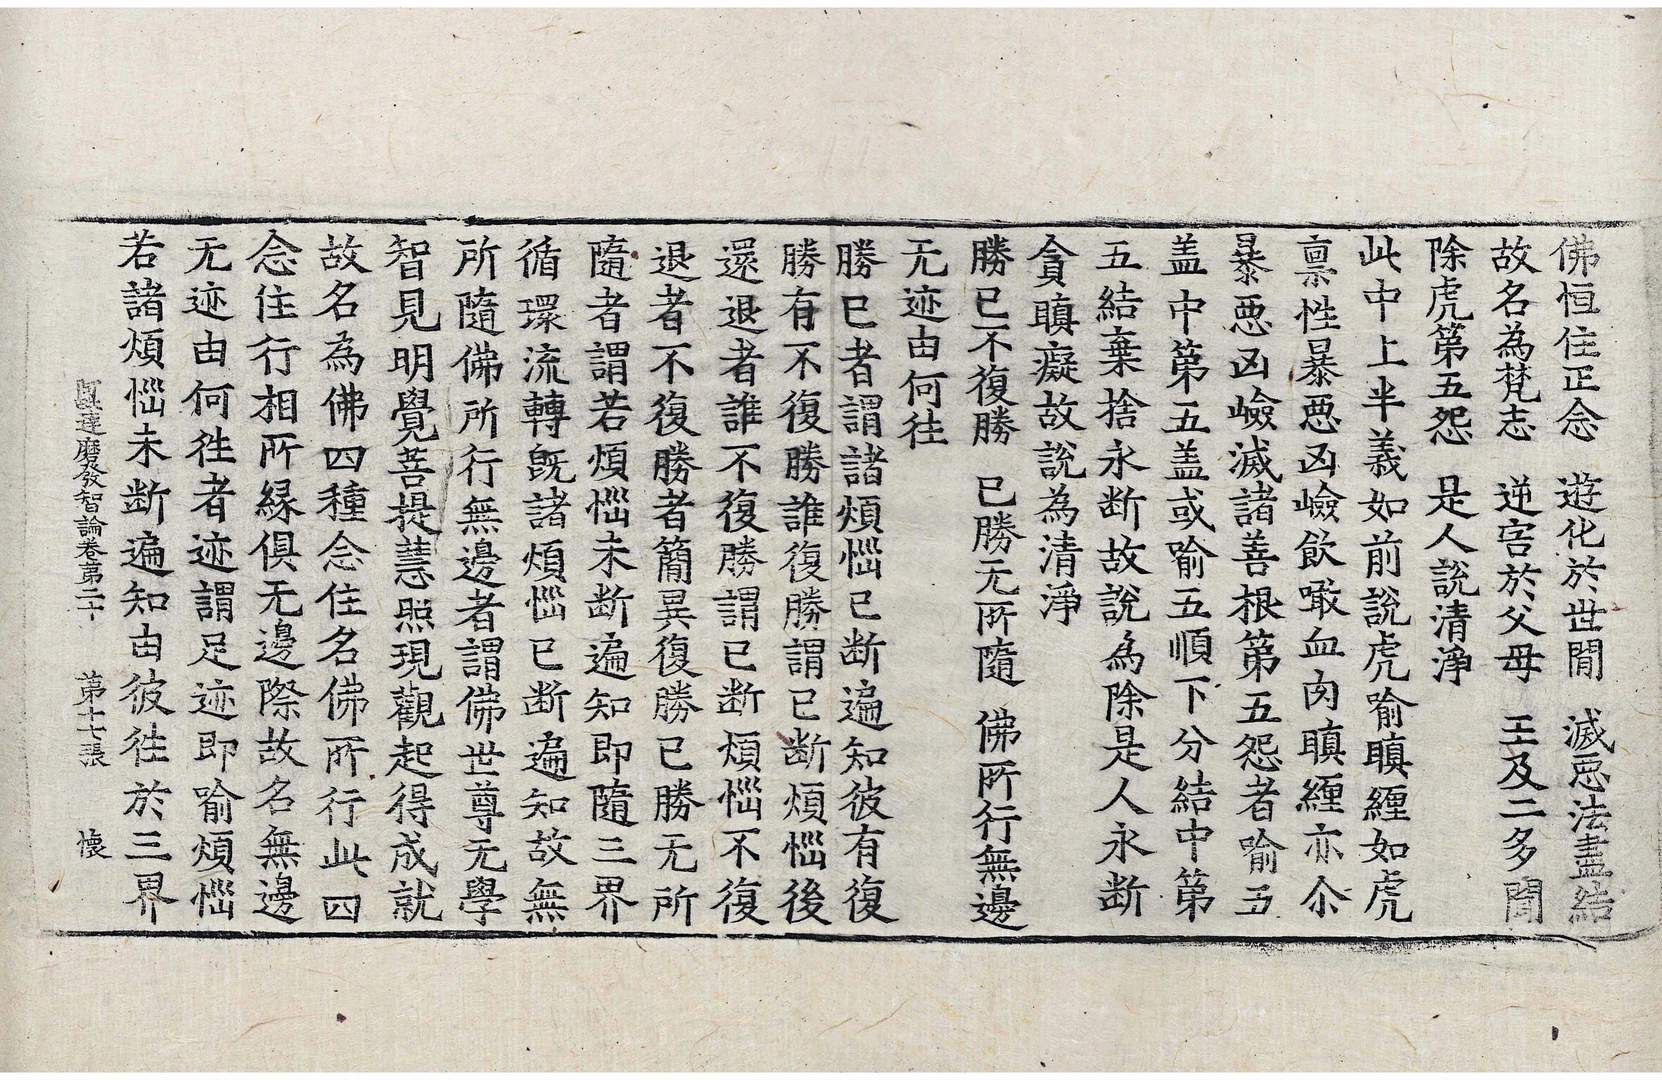 佛恒住正念　遊化於世間　滅惡法盡結
故名為梵志　逆害於父母　王及二多聞
除虎第五怨　是人說清淨
此中上半義如前說虎喻瞋纏如虎
禀性暴惡凶嶮飲噉血肉瞋纏亦尒
暴惡凶嶮滅諸善根第五怨者喻五
盖中第五盖或喻五順下分結中第
五結棄捨永断故說為除是人永断
貪瞋癡故說為清淨
勝已不復勝　已勝无所隨　佛所行無邊
无迹由何往
勝已者謂諸煩惱已断遍知彼有復
勝有不復勝誰復勝謂已断煩惱後
還退者誰不復勝謂已断煩惱不復
退者不復勝者簡異復勝已勝无所
隨者謂若煩惱未断遍知即隨三界
循環流轉既諸煩惱已断遍知故無
所隨佛所行無邊者謂佛世尊无學
智見明覺菩提慧照現觀起得成就
故名為佛四種念住名佛所行此四
念住行相所緣俱无邊際故名無邊
无迹由何往者迹謂足迹即喻煩惱
若諸煩惱未断遍知由彼往於三界
達磨發智論卷第二十　第十七張　懷